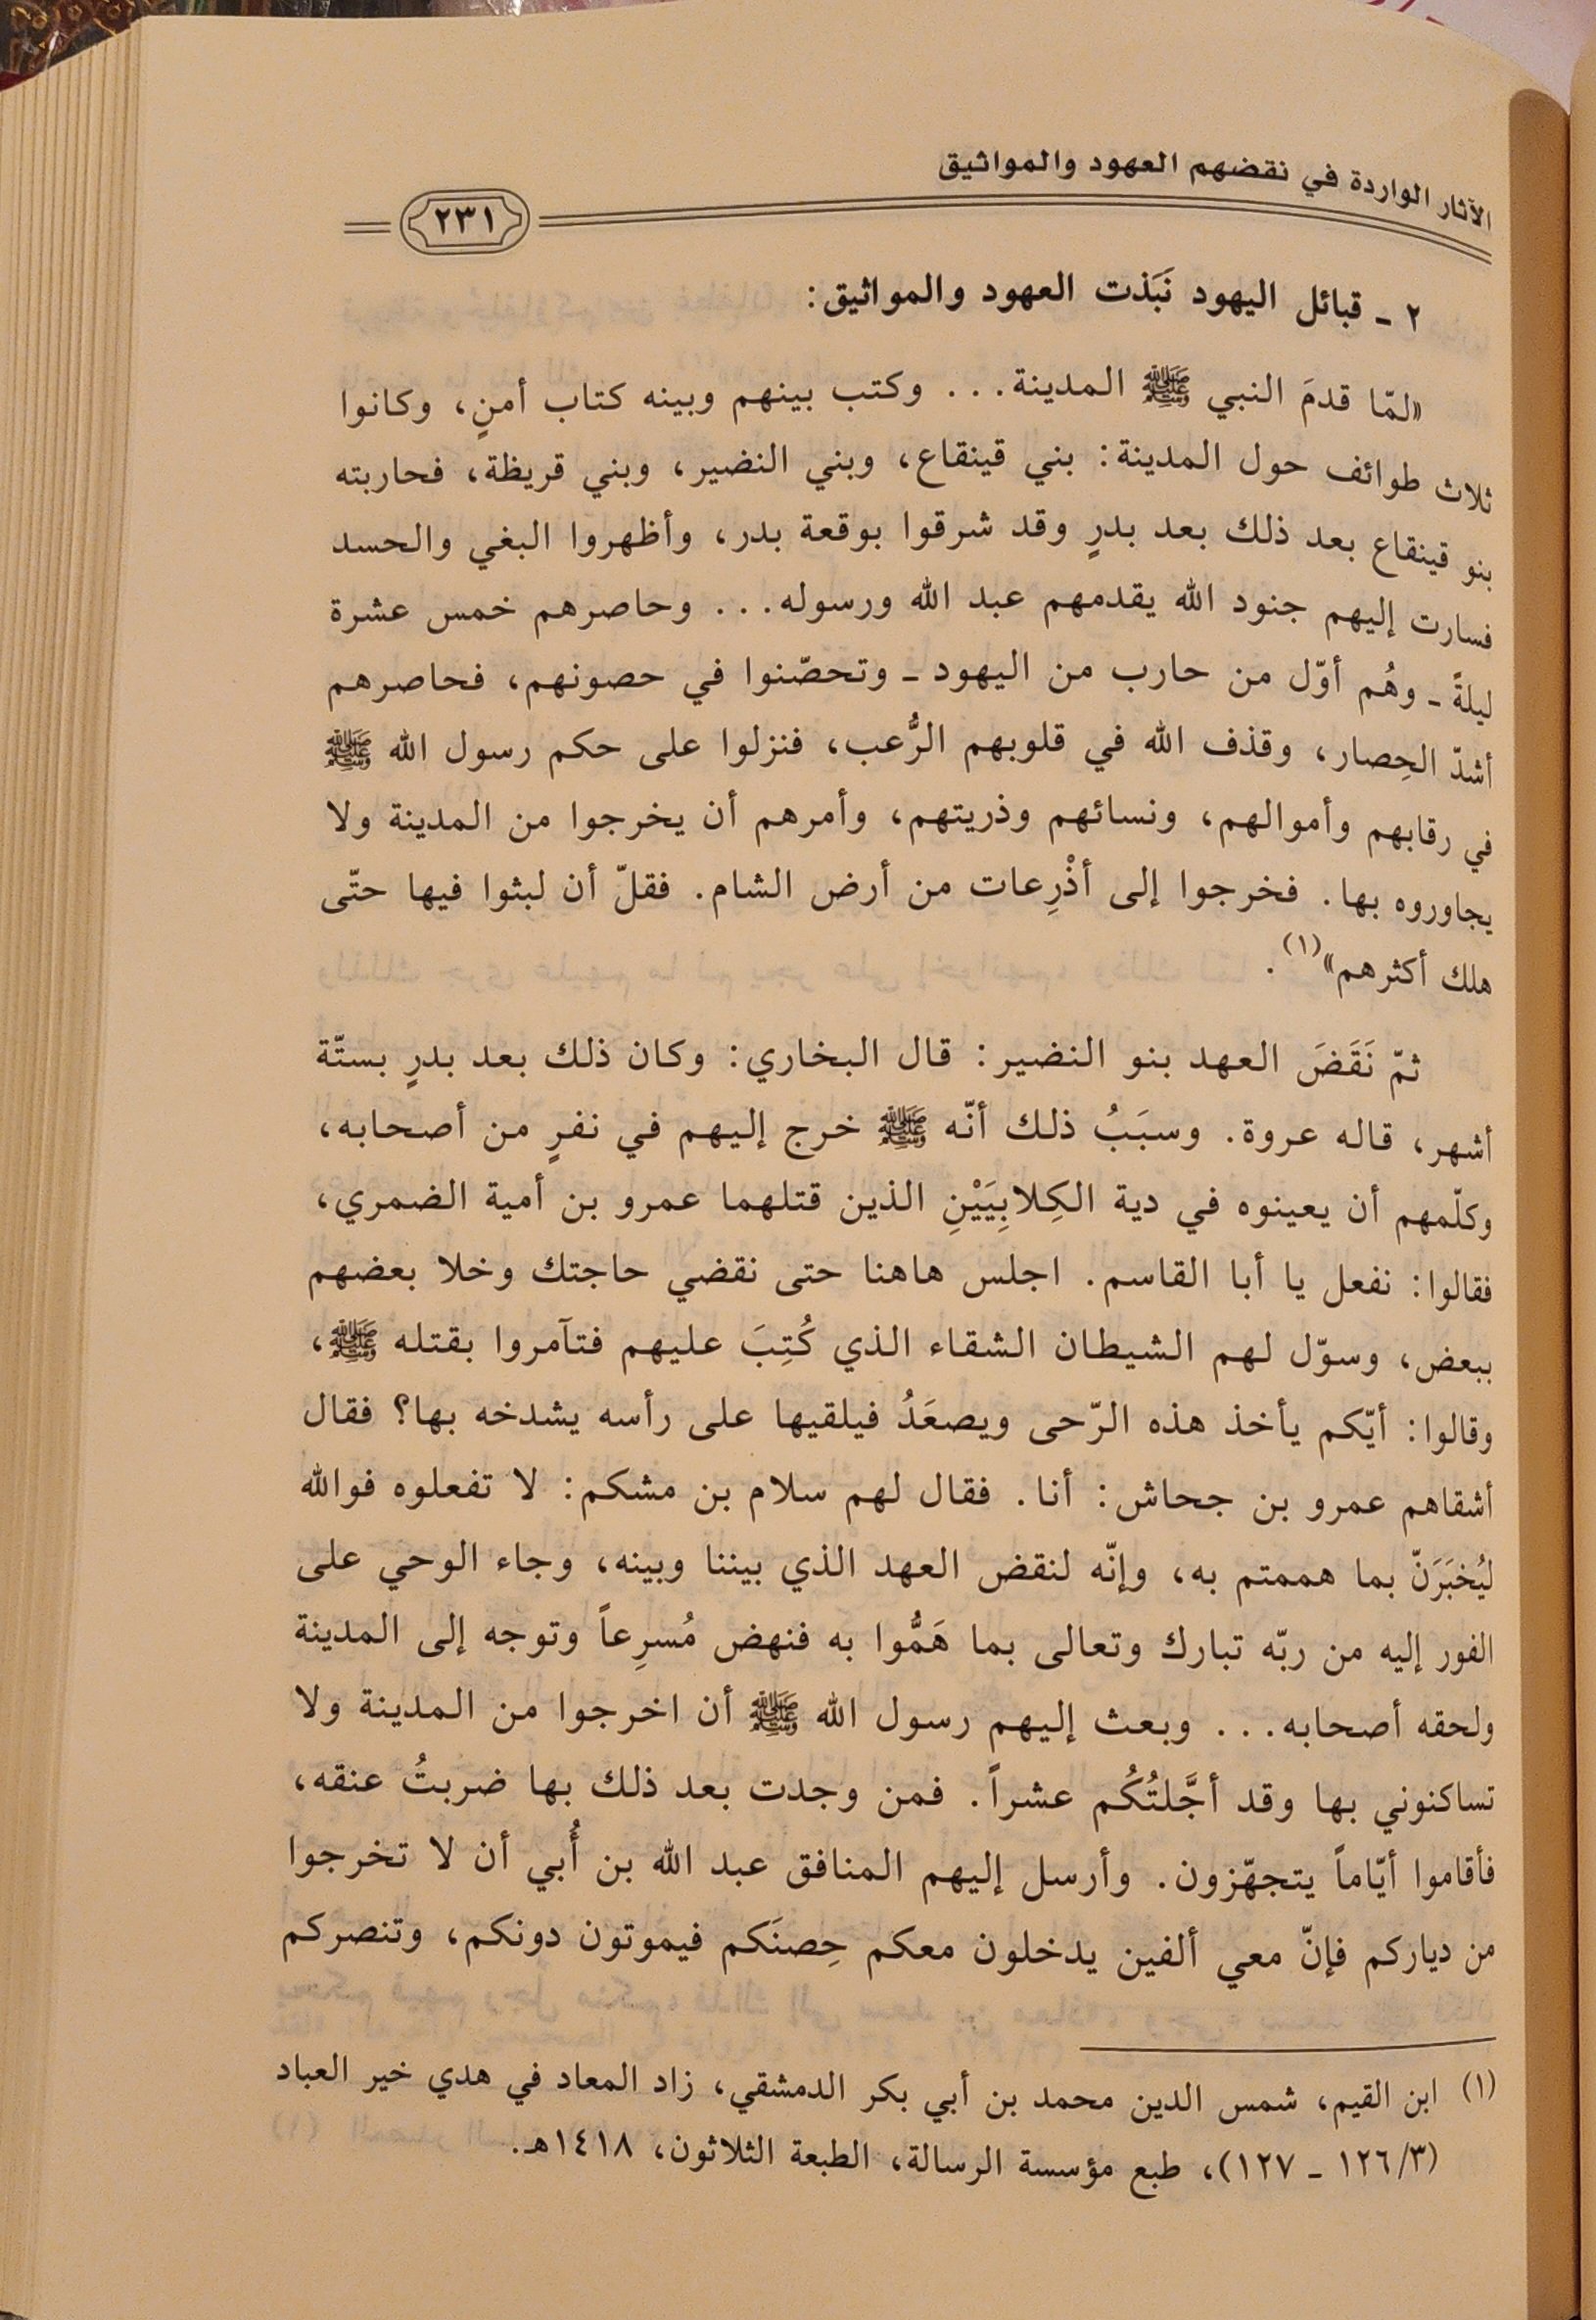 الآثار الواردة في نقضهم العهود والمواثيق
٢٣١
٢ ـ قبائل اليهود نَبَذت العهود والمواثيق:
«لمّا قدمَ النبي ﷺ المدينة... وكتب بينهم وبينه كتاب أمنٍ، وكانوا
ثلاث طوائف حول المدينة: بني قينقاع، وبني النضير، وبني قريظة، فحاربته
بنو قينقاع بعد ذلك بعد بدرٍ وقد شرقوا بوقعة بدر، وأظهروا البغي والحسد
فسارت إليهم جنود الله يقدمهم عبد الله ورسوله... وحاصرهم خمس عشرة
ليلةً ـ وهُم أوّل من حارب من اليهود ـ وتحصّنوا في حصونهم، فحاصرهم
أشدّ الحِصار، وقذف الله في قلوبهم الرُّعب، فنزلوا على حكم رسول الله ﷺ
في رقابهم وأموالهم، ونسائهم وذريتهم، وأمرهم أن يخرجوا من المدينة ولا
يجاوروه بها. فخرجوا إلى أذْرِعات من أرض الشام. فقلّ أن لبثوا فيها حتّى
هلك أكثرهم»(١).
ثمّ نَقَضَ العهد بنو النضير: قال البخاري: وكان ذلك بعد بدرٍ بستّة
أشهر، قاله عروة. وسبَبُ ذلك أنّه ﷺ خرج إليهم في نفرٍ من أصحابه،
وكلّمهم أن يعينوه في دية الكِلابِيَيْنِ الذين قتلهما عمرو بن أمية الضمري،
فقالوا: نفعل يا أبا القاسم. اجلس هاهنا حتى نقضي حاجتك وخلا بعضهم
ببعض، وسوّل لهم الشيطان الشقاء الذي كُتِبَ عليهم فتآمروا بقتله ﷺ،
وقالوا: أيّكم يأخذ هذه الرّحى ويصعَدُ فيلقيها على رأسه يشدخه بها؟ فقال
أشقاهم عمرو بن جحاش: أنا. فقال لهم سلام بن مشكم: لا تفعلوه فوالله
ليُخبَرَنّ بما هممتم به، وإنّه لنقض العهد الذي بيننا وبينه، وجاء الوحي على
الفور إليه من ربّه تبارك وتعالى بما هَمُّوا به فنهض مُسرِعاً وتوجه إلى المدينة
ولحقه أصحابه... وبعث إليهم رسول الله ﷺ أن اخرجوا من المدينة ولا
تساكنوني بها وقد أجَّلتُكُم عشراً. فمن وجدت بعد ذلك بها ضربتُ عنقه،
فأقاموا أيّاماً يتجهّزون. وأرسل إليهم المنافق عبد الله بن أُبي أن لا تخرجوا
من دياركم فإنّ معي ألفين يدخلون معكم حِصنَكم فيموتون دونكم، وتنصركم
(١) ابن القيم، شمس الدين محمد بن أبي بكر الدمشقي، زاد المعاد في هدي خير العباد
(٣/ ١٢٦ ـ ١٢٧)، طبع مؤسسة الرسالة، الطبعة الثلاثون، ١٤١٨هـ.